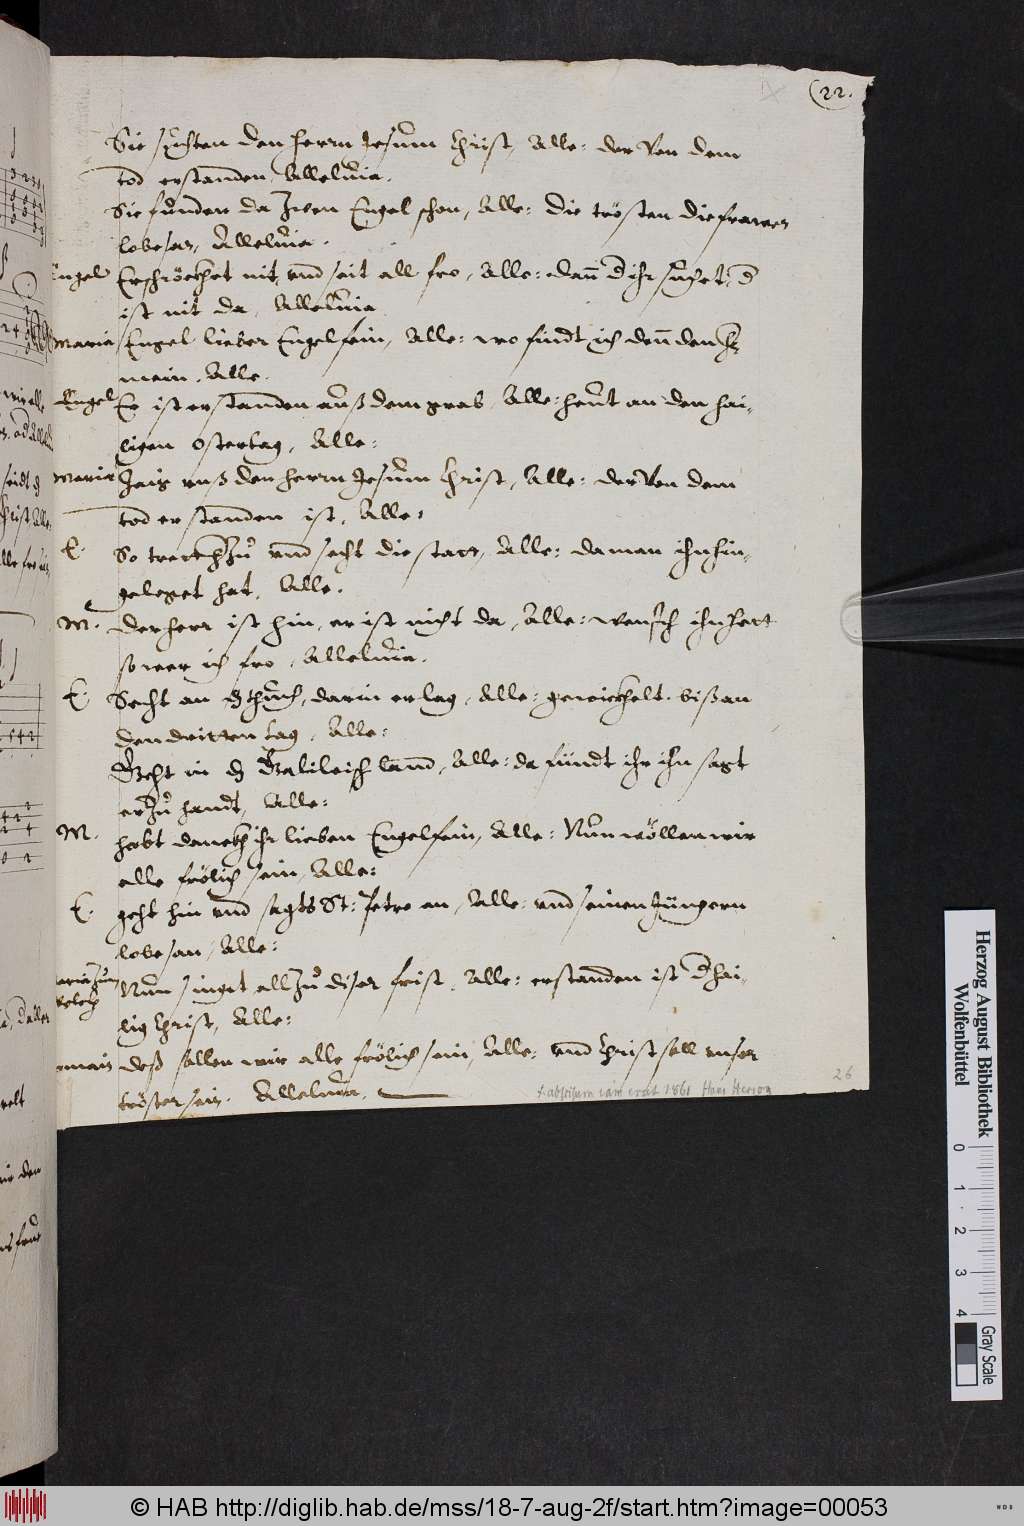 22.
Sie suchten den herrn Jesum Christ, Alle: der von dem
tod erstanden, Alleluia.
Sie funden da zwen Engel schon, Alle: die trösten die frawen
lobesan, Alleluia.
Engel Erschröckhet nit, vnd seit all fro, Alle: dann d ihr suchet, d
ist nit da, Alleluia
Maria Engel lieber Engel fein, Alle: wo findt ich denn den h
mein, Alle.
Engel Er ist erstanden auß dem grab, Alle: heut an den hai-
ligen Ostertag, Alle:
Maria Zaig vnß den herrn Jesum Christ, Alle: der von dem
tod erstanden ist, Alle:
E. So trettet herzu vnd secht die statt, Alle: da man ihn hin-
geleget hat, Alle.
M. Der herr ist hin, er ist nicht da, Alle: wan ich ihn hett
so wer ich fro, Alleluia.
E. Secht an d thuch, darin er lag, Alle: gewickhelt biß an
den dritten tag, Alle:
Geht in d Galileisch land, Alle: da fündt ihr ihn sagt
er zu handt, Alle:
M. habt danckh ihr lieben Engel fein, Alle: Nun wöllen wir
alle frölich sein, Alle:
E. geht hin vnd sagts St: Petro an, Alle: vnd seinen Jüngern
lobesan, Alle:
Maria zum volckh Nun singet all zu diser frist, Alle: erstanden ist d hai-
lig Christ, Alle:
deß sollen wir alle frölich sein, Alle: vnd Christ soll vnser
tröster sein. Alleluia.
1861 Hans Herzog
26
Herzog August Bibliothek
Wolfenbüttel
0 1 2 3 4
Gray Scale
© HAB http://diglib.hab.de/mss/18-7-aug-2f/start.htm?image=00053